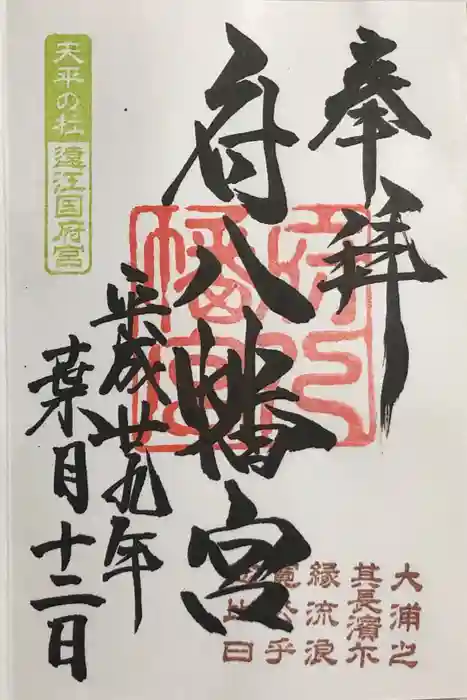 奉拝
府八幡宮
平成廿九年
葉月十二日
天平の杜
遠江国府宮
府八
幡宮
大浦之
其長濱尓
縁流浪
寛公乎
比日